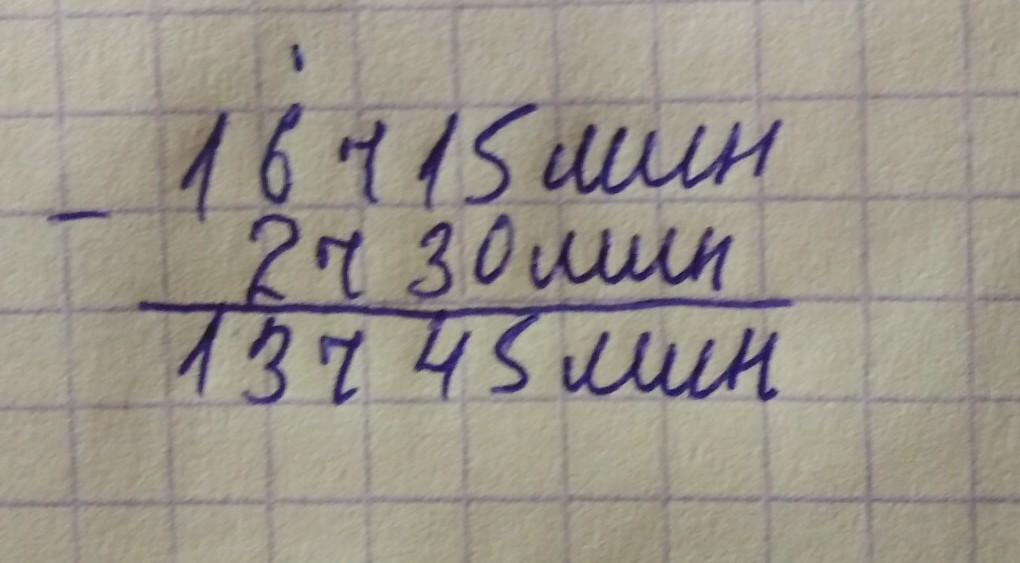 16 ч 15 мин
- 2 ч 30 мин
13 ч 45 мин